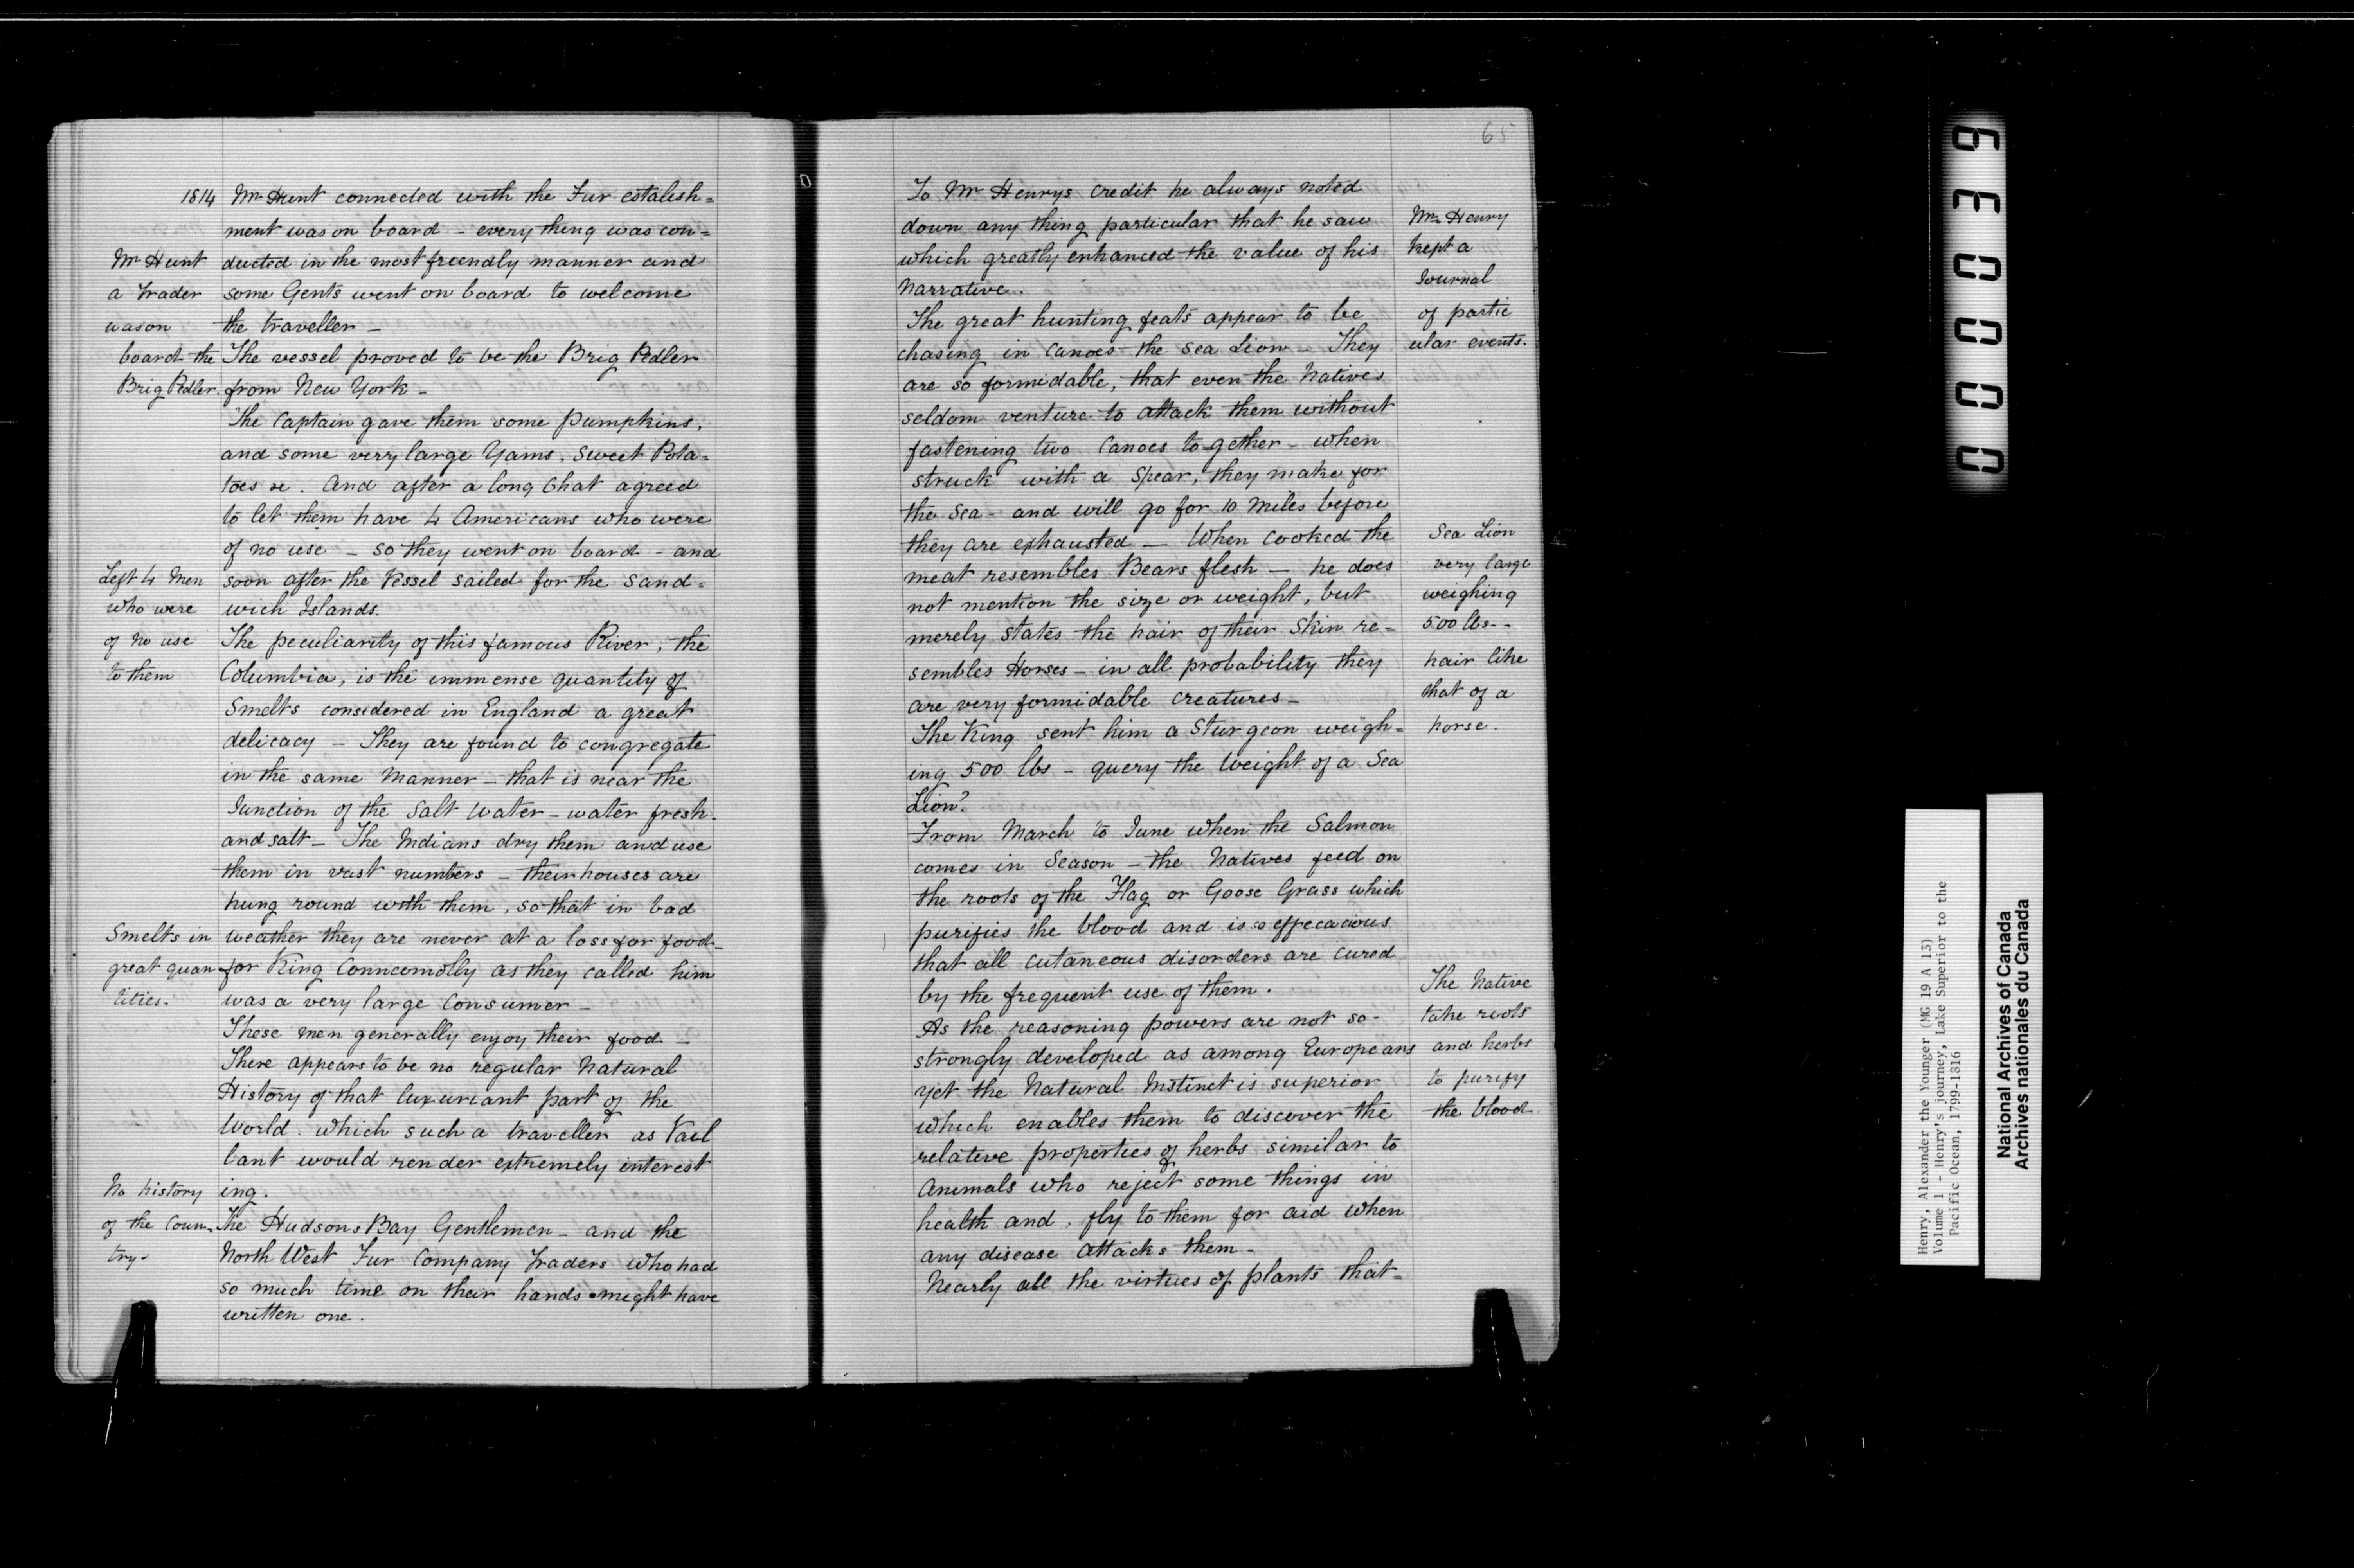 1814
Mr Hunt connected with the Fur estalish=
ment was on board - every thing was con=
ducted in the most freendly manner and
some Gents went on board to welcome
the traveller -
The vessel proved to be the Brig Pedler
from New York -
The Captain gave them some Pumpkins,
and some very large Yams, Sweet Pota=
toes &c. And after a long Chat agreed
to let them have 4 Americans who were
of no use - so they went on board - and
soon after the Vessel sailed for the Sand=
wich Islands.
The peculiarity of this famous River, the
Columbia, is the immense quantity of
Smelts considered in England a great
delicacy - They are found to congregate
in the same Manner - that is near the
Junction of the Salt Water - water fresh
and salt - The Indians dry them and use
them in vast numbers - their houses are
hung round with them, so that in bad
weather they are never at a loss for food -
for King Conncomolly as they called him
was a very large Consumer -
These men generally enjoy their food -
There appears to be no regular Natural
History of that luxuriant part of the
World. which such a traveller as Vail
lant would render extremely interest
ing.
The Hudsons Bay Gentlemen - and the
North West Fur Company Traders who had
so much time on their hands might have
written one.
Mr Hunt
a Trader
was on
board the
Brig Pedler.
Left 4 Men
who were
of no use
to them
Smelts in
great quan
tities.
No history
of the Coun=
try.
65
To Mr Henrys credit he always noted
down any thing particular that he saw
which greatly enhanced the value of his
Narrative.
The great hunting feats appear to be
chasing in Canoes the Sea Lion - They
are so formidable, that even the Natives
seldom venture to attack them without
fastening two Canoes to-gether - when
struck with a Spear, they make for
the Sea - and will go for 10 Miles before
they are exhausted - When cooked the
meat resembles Bears flesh - he does
not mention the size or weight, but
merely states the hair of their Skin re=
sembles Horses - in all probability they
are very formidable creatures -
The King sent him a Sturgeon weigh=
ing 500 lbs - query the Weight of a Sea
Lion?
From March to June when the Salmon
comes in Season - the Natives feed on
the roots of the Flag or Goose Grass which
purifies the blood and is so effecacious
that all cutaneous disorders are cured
by the frequent use of them.
As the reasoning powers are not so-
strongly developed as among Europeans
yet the Natural Instinct is superior
which enables them to discover the
relative properties of herbs similar to
Animals who reject some things in
health and, fly to them for aid when
any disease attacks them -
Nearly all the virtues of plants that=
Mr Henry
kept a
Journal
of partic
ular events.
Sea Lion
very large
weighing
500 lbs --
hair like
that of a
horse.
The Native
take roots
and herbs
to purify
the blood.
000039
Henry, Alexander the Younger (MG 19 A 13)
Volume 1 - Henry's journey, Lake Superior to the
Pacific Ocean, 1799-1816
National Archives of Canada
Archives nationales du Canada